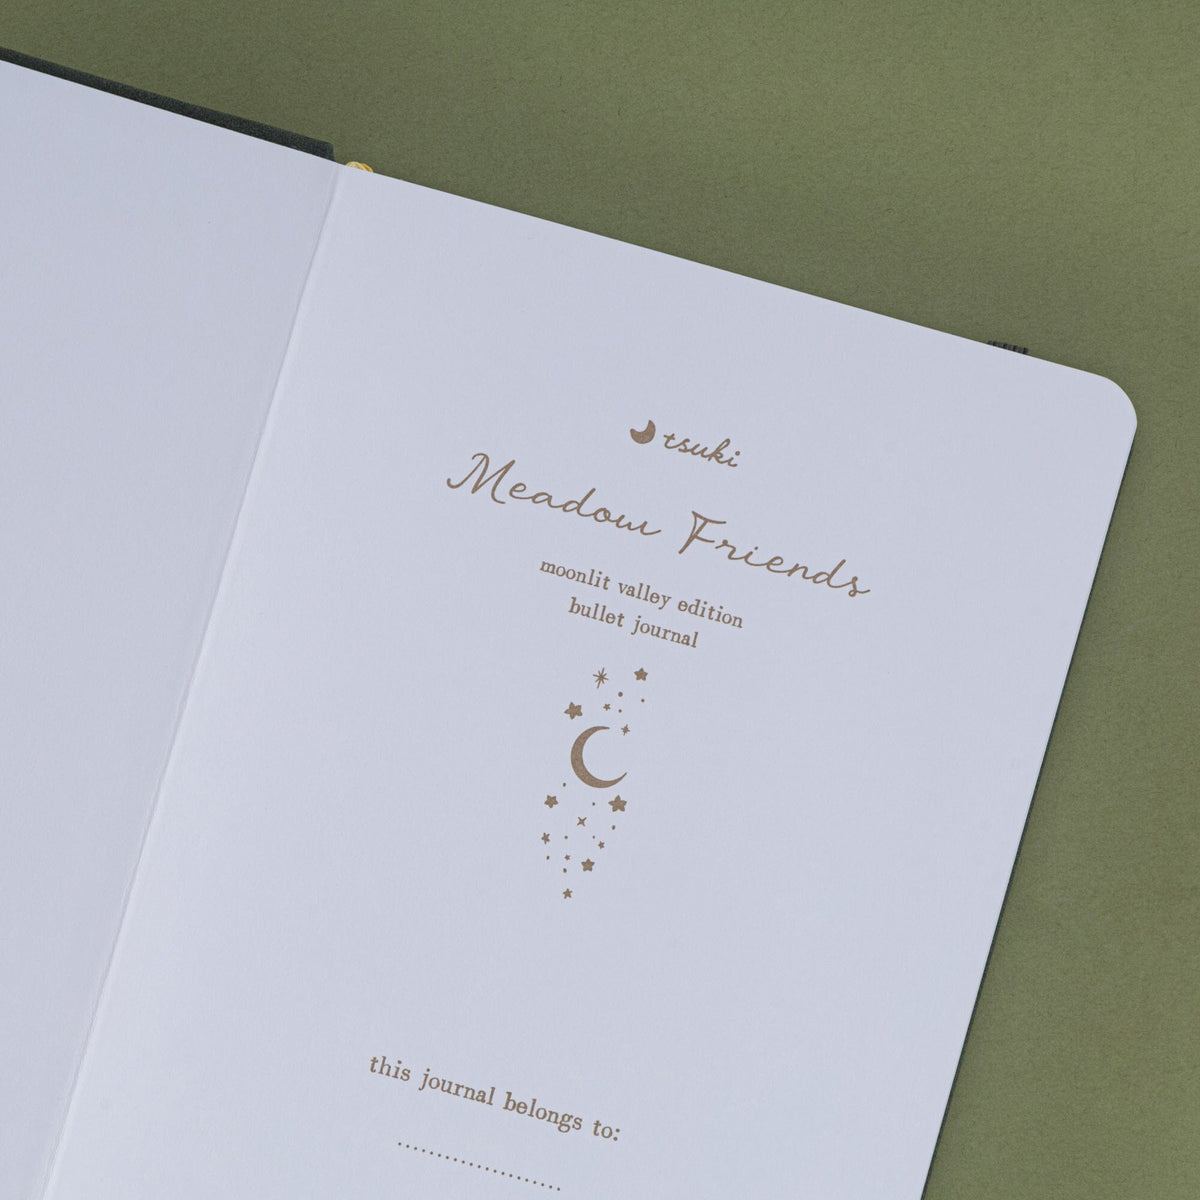 tsuki
Meadow Friends
moonlit valley edition
bullet journal
this journal belongs to: